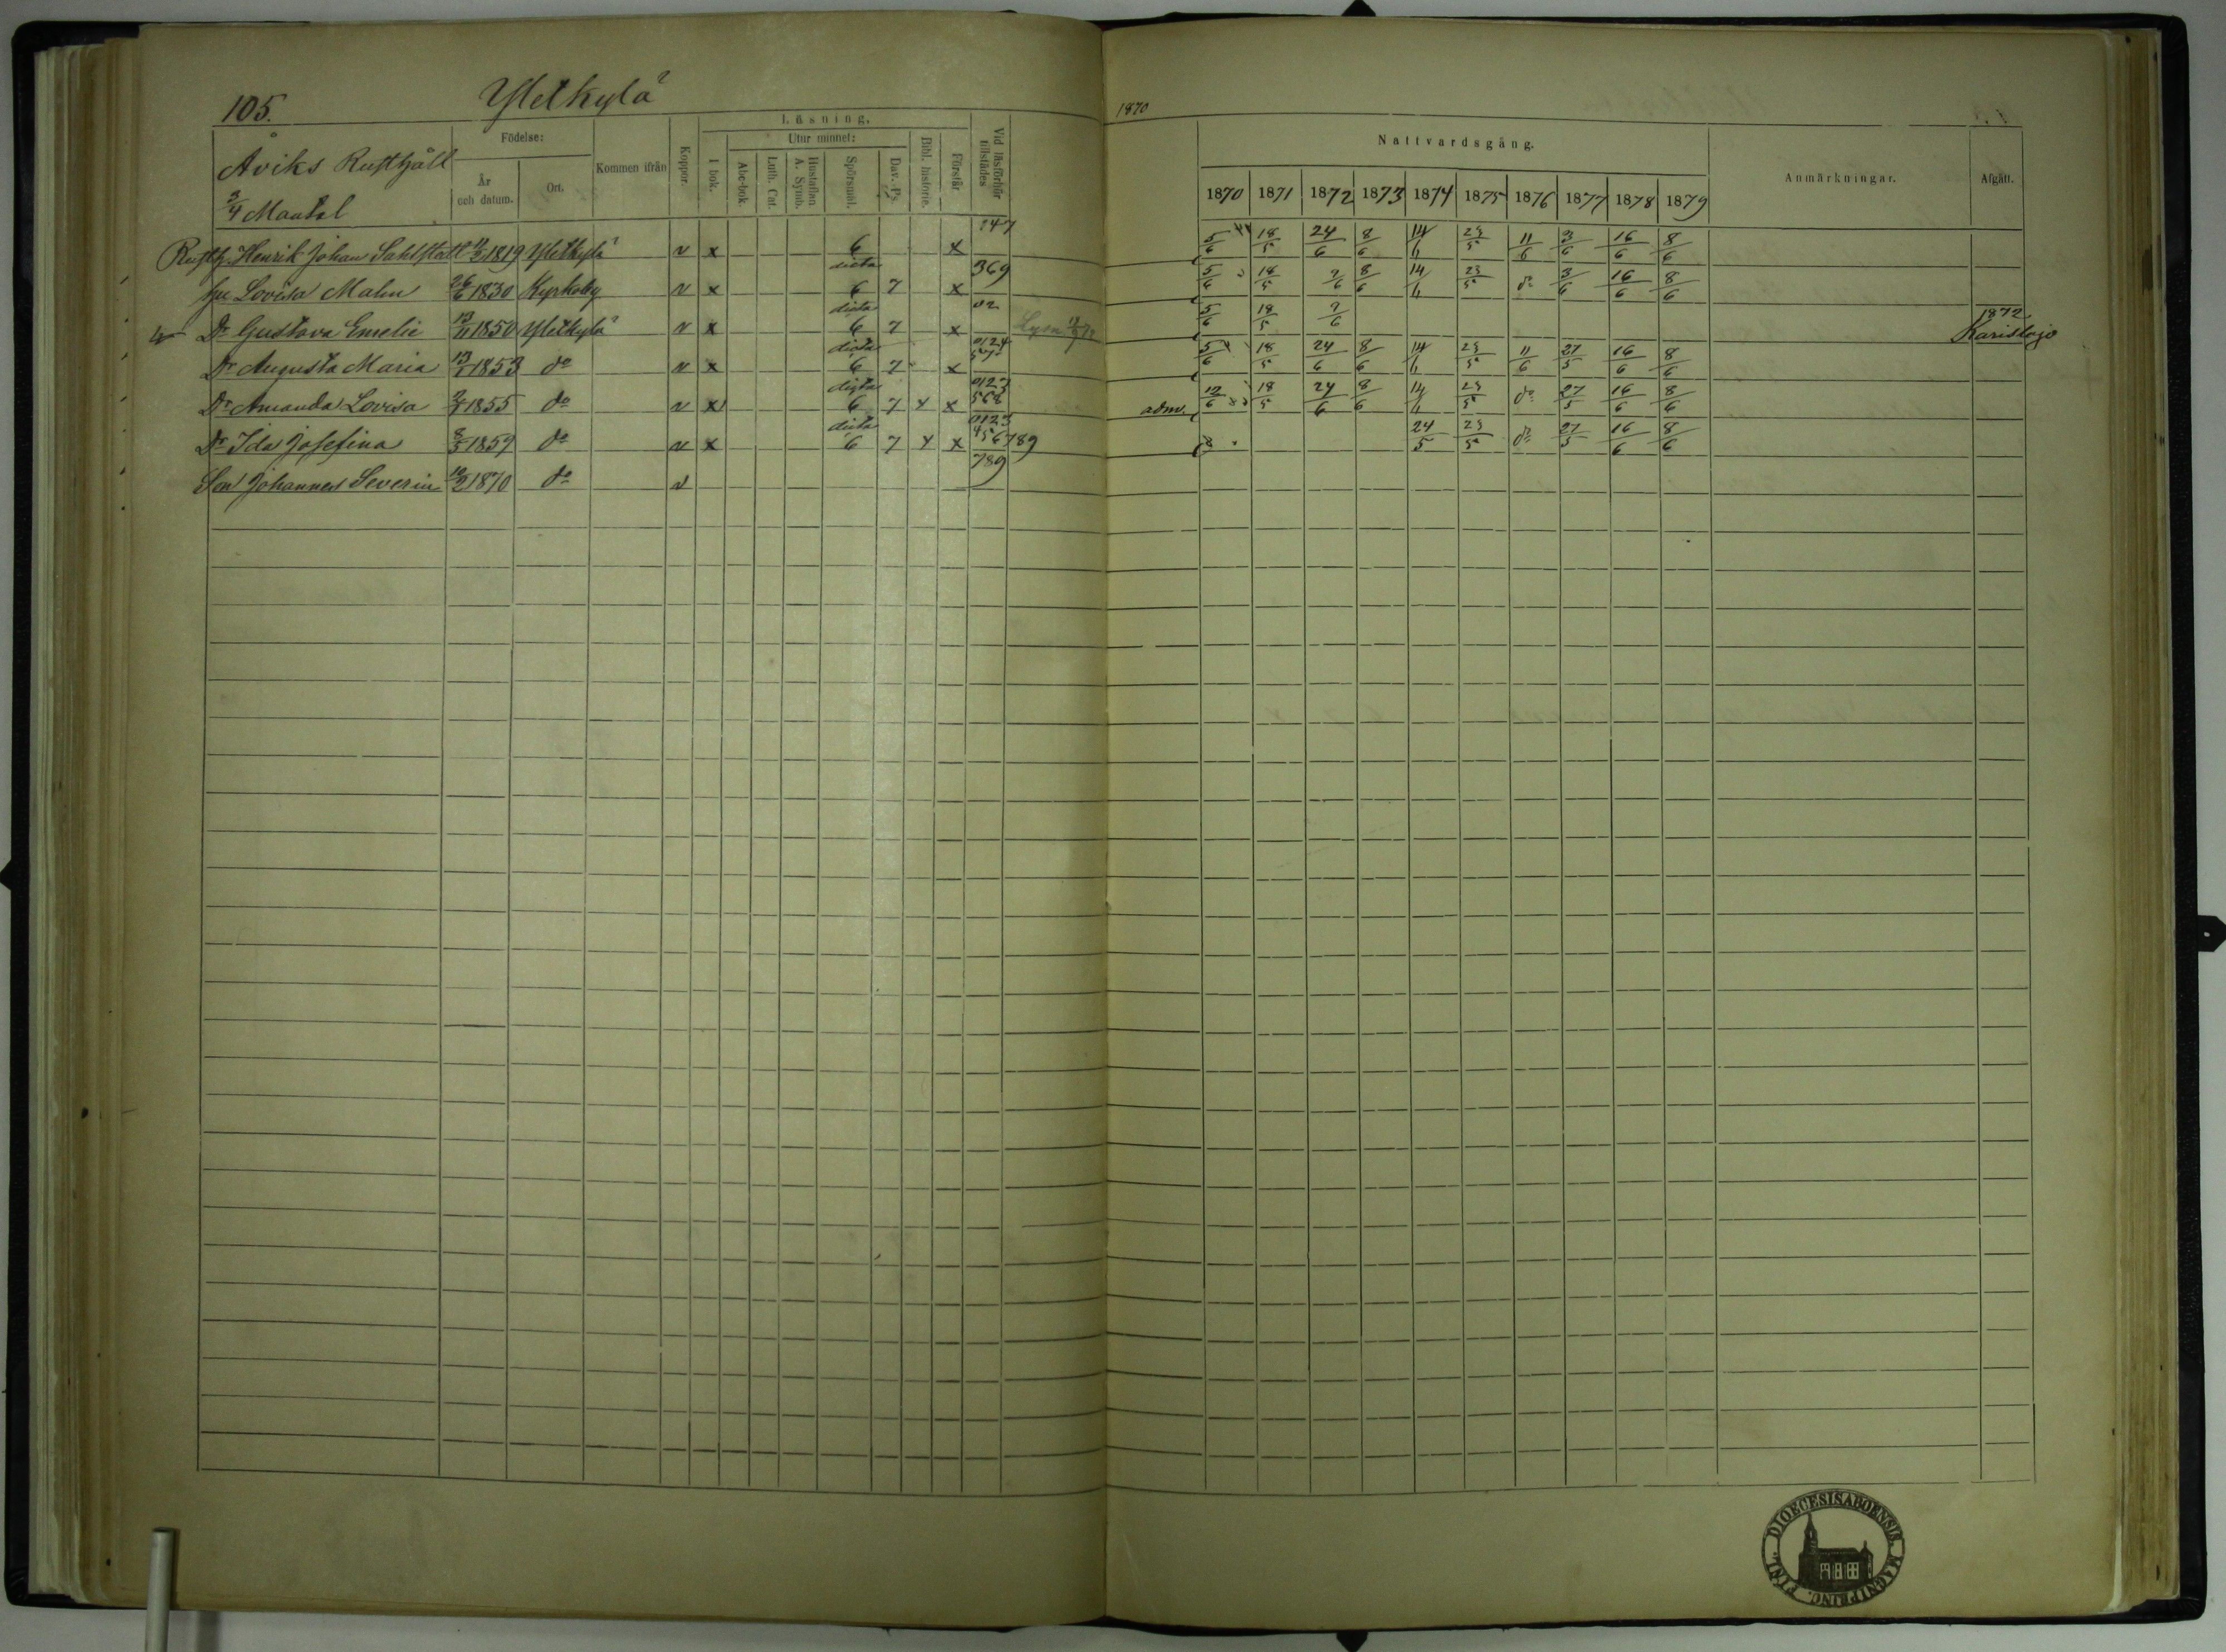 105. Yletkylä
1870
Åviks Rusthåll
3/4 Mantal
Födelse:
År och datum.
Ort.
Kommen ifrån
Koppor.
Läsning.
I bok.
Utur minnet:
Abc-bok.
Luth. Cat.
Hustaflan A. Symb.
Spörsmål.
Dav. Ps.
Bibl. historie.
Förstår
Vid läsförhör tillstädes
Nattvardsgång.
1870 1871 1872 1873 1874 1875 1876 1877 1878 1879
Anmärkningar.
Afgått.
Rusth. Henrik Johan Sahlstedt 1819 Yletkylä v x 6 x 247 5/6 18/5 24/6 8/6 14/6 23/5 11/6 3/6 16/6 8/6
hu Lovisa Malm 26/6 1830 Kyrkoby v x dicta 6 7 x 369 5/6 18/5 2/6 8/6 14/6 23/5 do 3/6 16/6 8/6
Dr Gustava Emelie 13/11 1850 Yletkylä v x dicta 6 7 x 02 Lysn 5/6 18/5 2/6 1872 Karislojo
Dr Augusta Maria 13/1 1853 do v x dicta 6 7 x 0124 57 5/6 18/5 24/6 8/6 14/6 23/5 11/6 27/5 16/6 8/6
Dr Amanda Lovisa 1855 do v x dicta 6 7 x x 0123 568 adm. 12/6 18/5 24/6 8/6 14/6 23/5 do 27/5 16/6 8/6
Dr Ida Josefina 8/5 1859 do v x dicta 6 7 x x 0123 456789 24/5 23/5 do 27/5 16/6 8/6
Son Johannes Severin 10/2 1870 do v 789
DIOECESIS ABOENSIS. MAGNI PRINC. FINL.